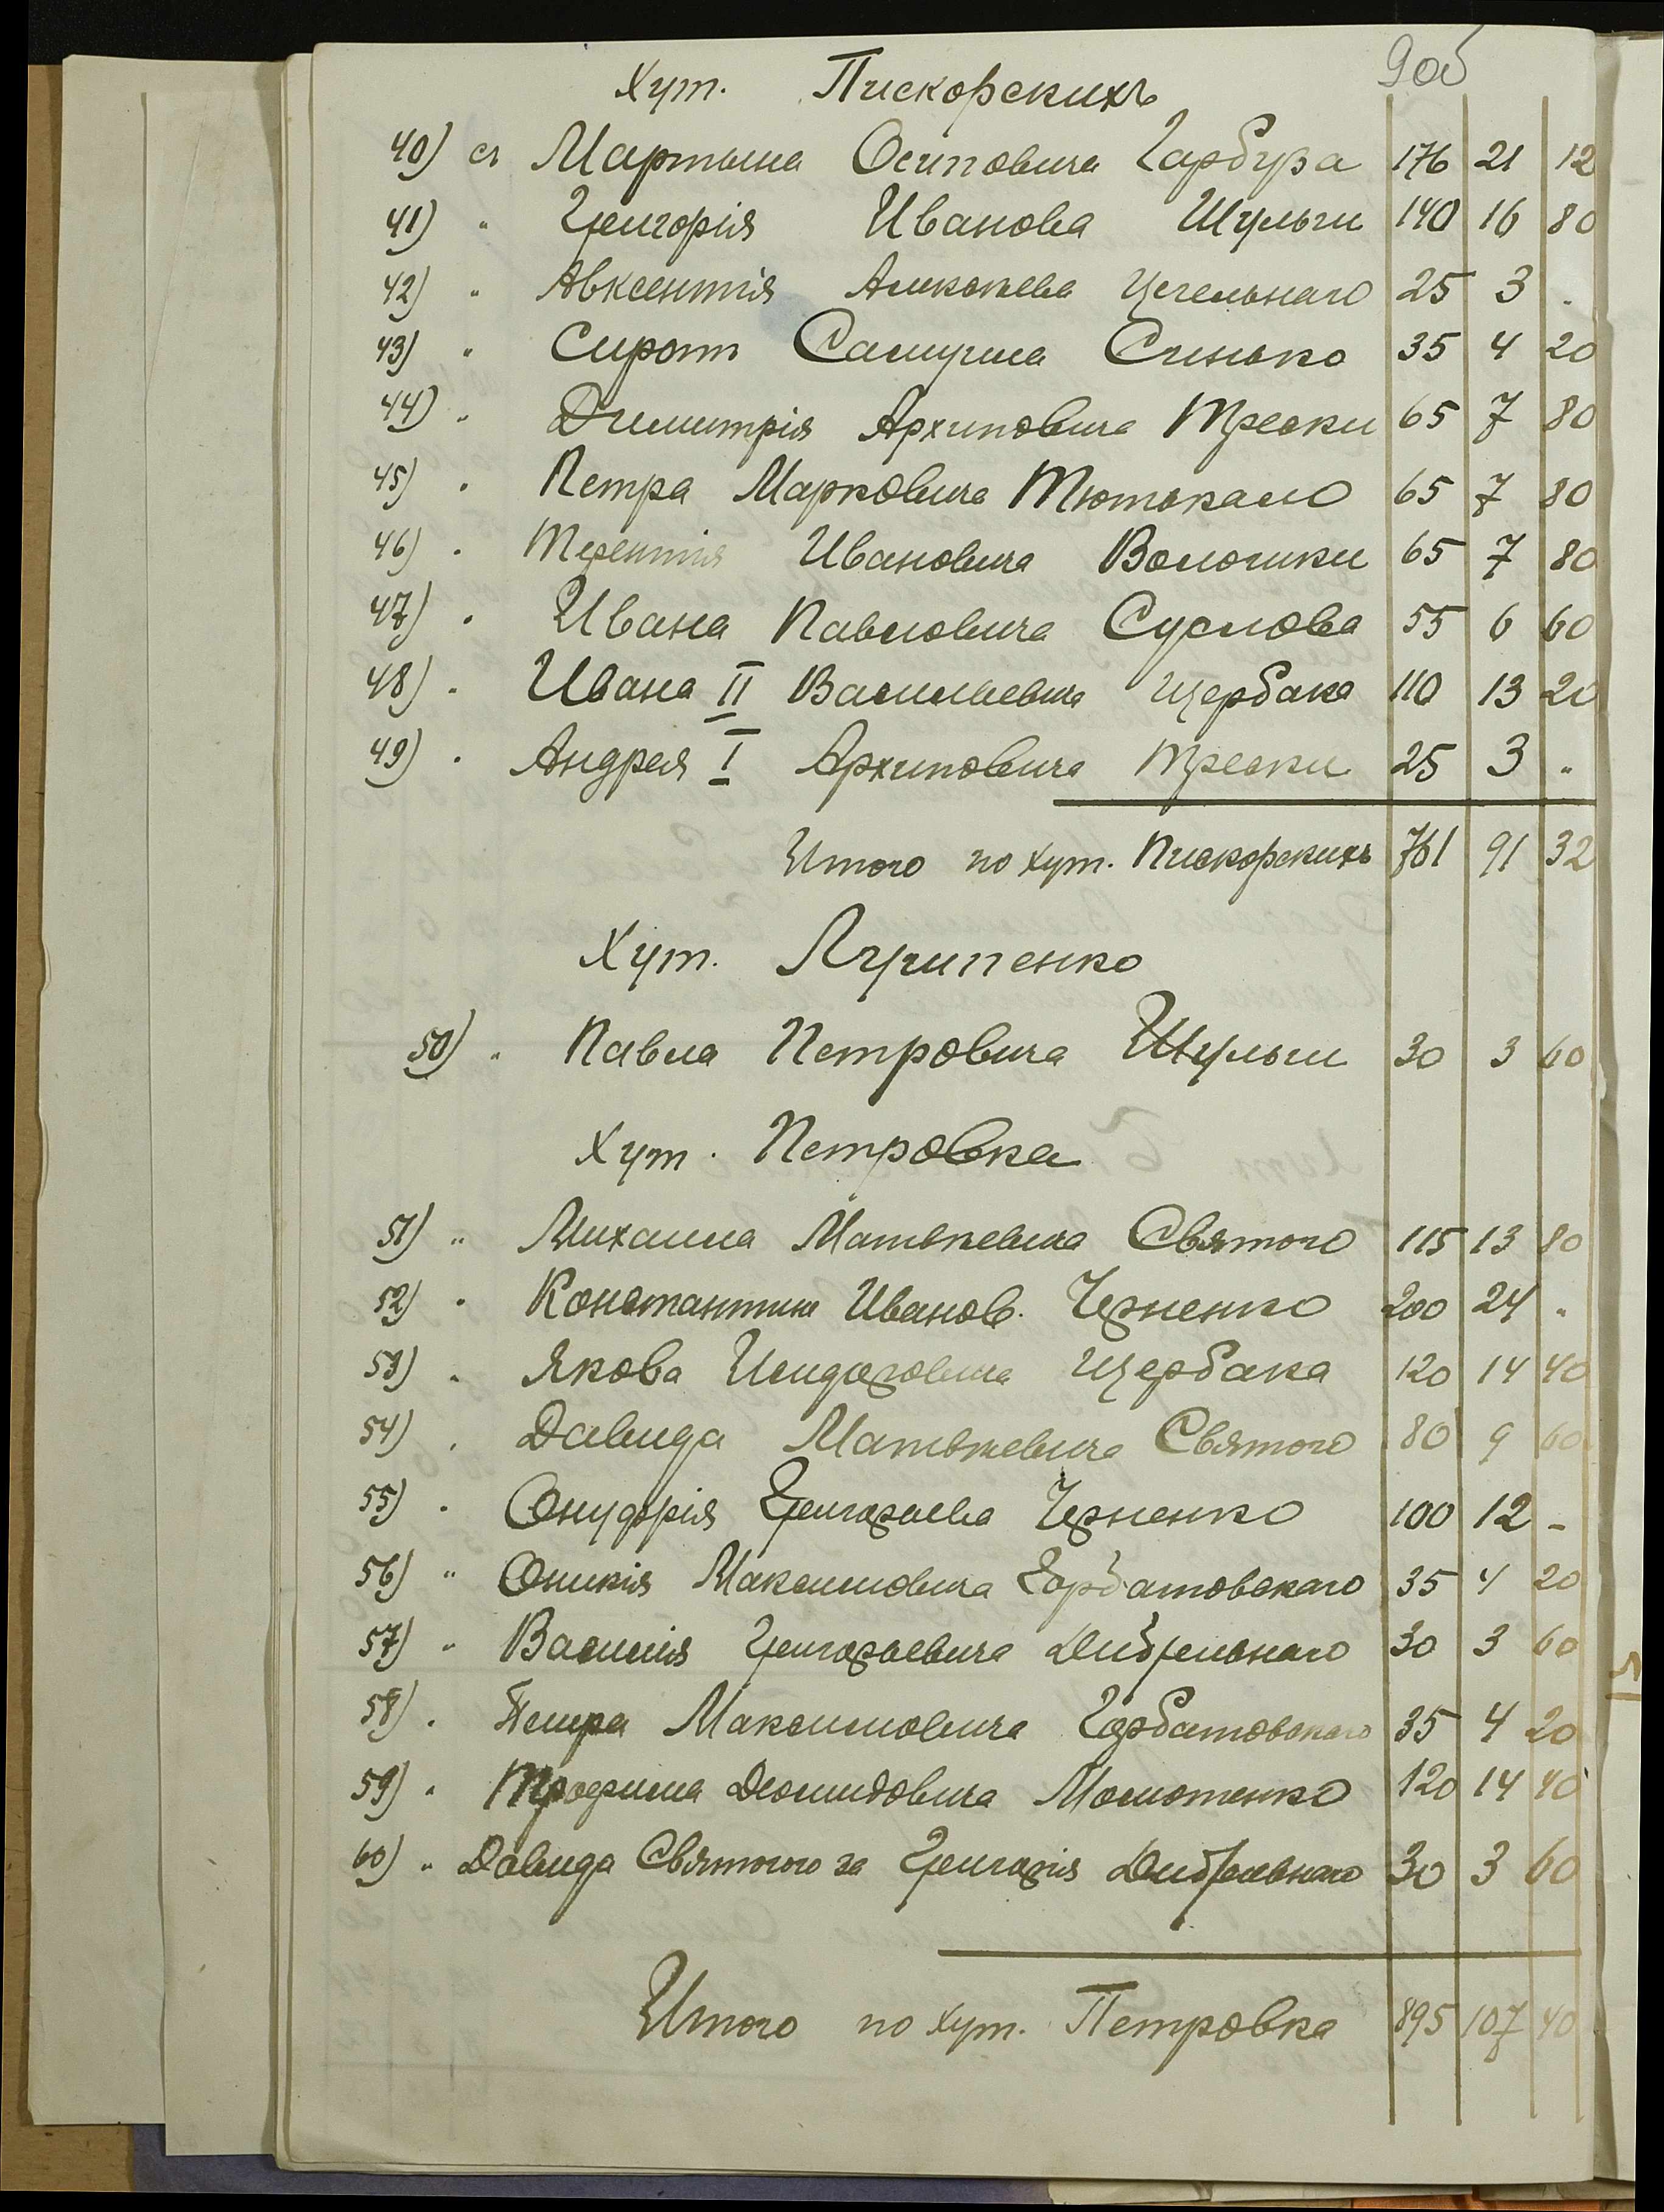 9об
Хут. Пискорскихъ
40) съ Мартына Осиповича Гарбуза 176 21 12
41) " Григорія Иванова Шульги 140 16 80
42) " Авксентія Алексѣева Цегельнаго 25 3 "
43) " Сирот Самуила Синько 35 4 20
44) " Димитрія Архиповича Трески 65 7 80
45) " Петра Марковича Тютькало 65 7 80
46) " Терентія Ивановича Волошки 65 7 80
47) " Ивана Павловича Суслова 55 6 60
48) " Ивана II Васильевича Щербака 110 13 20
49) " Андрея I Архиповича Трески 25 3 "
Итого по хут. Пискорскихъ 761 91 32
Хут.
50) " Павла Петровича Шульги 30 3 60
Хут. Петровка
51) " Михаила Матвѣевича Святого 115 13 80
52) " Константина Иванов. Черненко 200 24 "
53) " Якова Исидоровича Щербака 120 14 40
54) " Давида Матвѣевича Святого 80 9 60
55) " Онуфрія Григорьева Черненко 100 12 -
56) " Оникія Максимовича Горбатовскаго 35 4 20
57) " Василія Григорьевича Дибрельнаго 30 3 60
58) " Петра Максимовича Горбатовскаго 35 4 20
59) " Трофима Деомидовича Молотенко 120 14 40
60) " Давида Святогого за Григорія Дибрельнаго 30 3 60
Итого по хут. Петровка 895 107 40